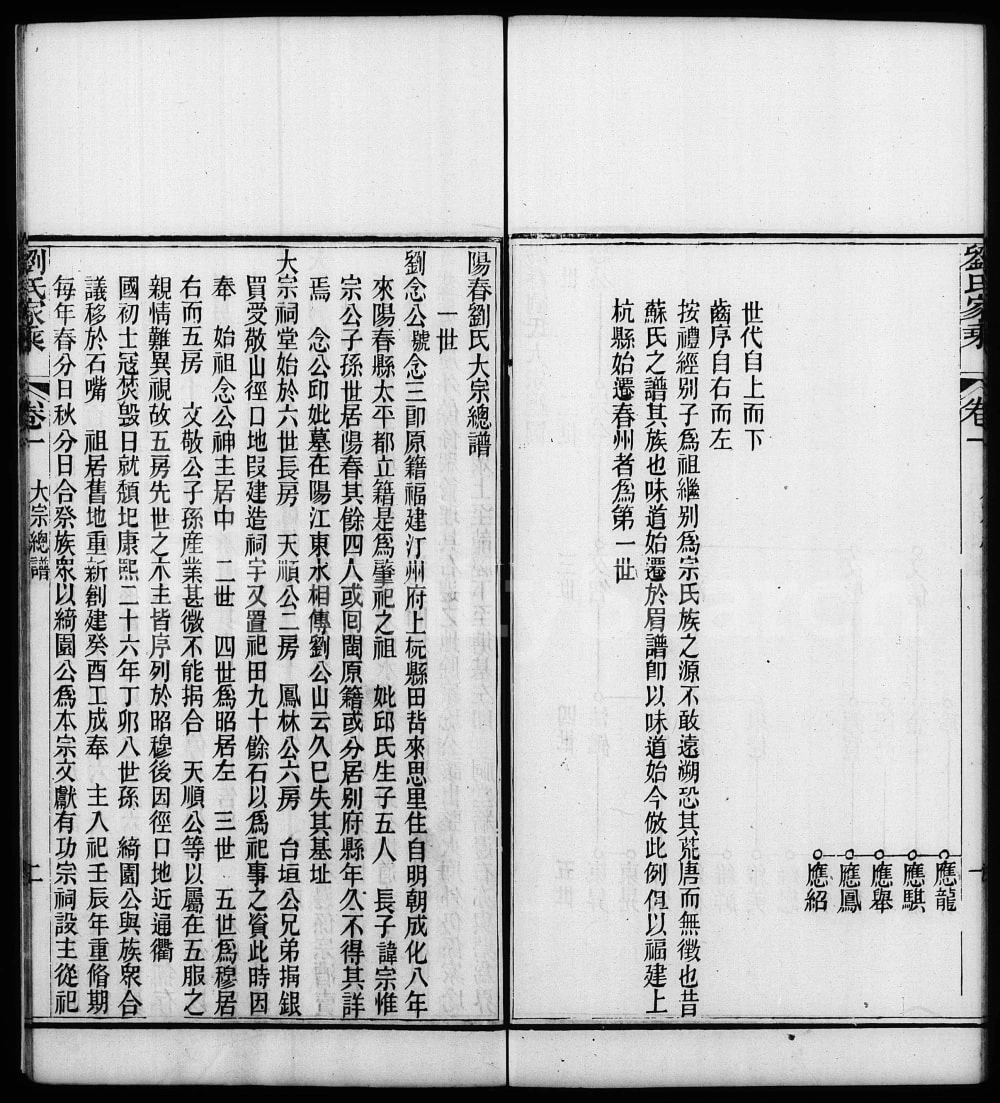 劉氏家乘
卷一
十
應龍
應騏
應舉
應鳳
應紹
世代自上而下
齒序自右而左
按禮經別子為祖繼別為宗氏族之源不敢遠溯恐其荒唐而無徵也昔
蘇氏之譜其族也味道始遷於眉譜卽以味道始今倣此例但以福建上
杭縣始遷春州者為第一世
陽春劉氏大宗總譜
一世
劉念公號念三郎原籍福建汀州府上杭縣田背來思里住自明朝成化八年
來陽春縣太平都立籍是為肇祀之祖 妣邱氏生子五人 長子諱宗惟
宗公子孫世居陽春其餘四人或囘閩原籍或分居別府縣年久不得其詳
焉 念公邱妣墓在陽江東水相傳劉公山云久已失其基址
大宗祠堂始於六世長房 天順公二房 鳳林公六房 台垣公兄弟捐銀
買受敬山徑口地叚建造祠宇又置祀田九十餘石以為祀事之資此時因
奉 始祖念公神主居中 二世 四世為昭居左 三世 五世為穆居
右而五房 文敬公子孫產業甚微不能捐合 天順公等以屬在五服之
親情難異視故五房先世之木主皆序列於昭穆後因徑口地近通衢
國初士冦焚毀日就頹圮康熙二十六年丁卯八世孫 綺園公與族衆合
議移於石嘴 祖居舊地重新創建癸酉工成奉 主入祀壬辰年重脩期
每年春分日秋分日合祭族衆以綺園公為本宗文獻有功宗祠設主從祀
劉氏家乘
卷一
大宗總譜